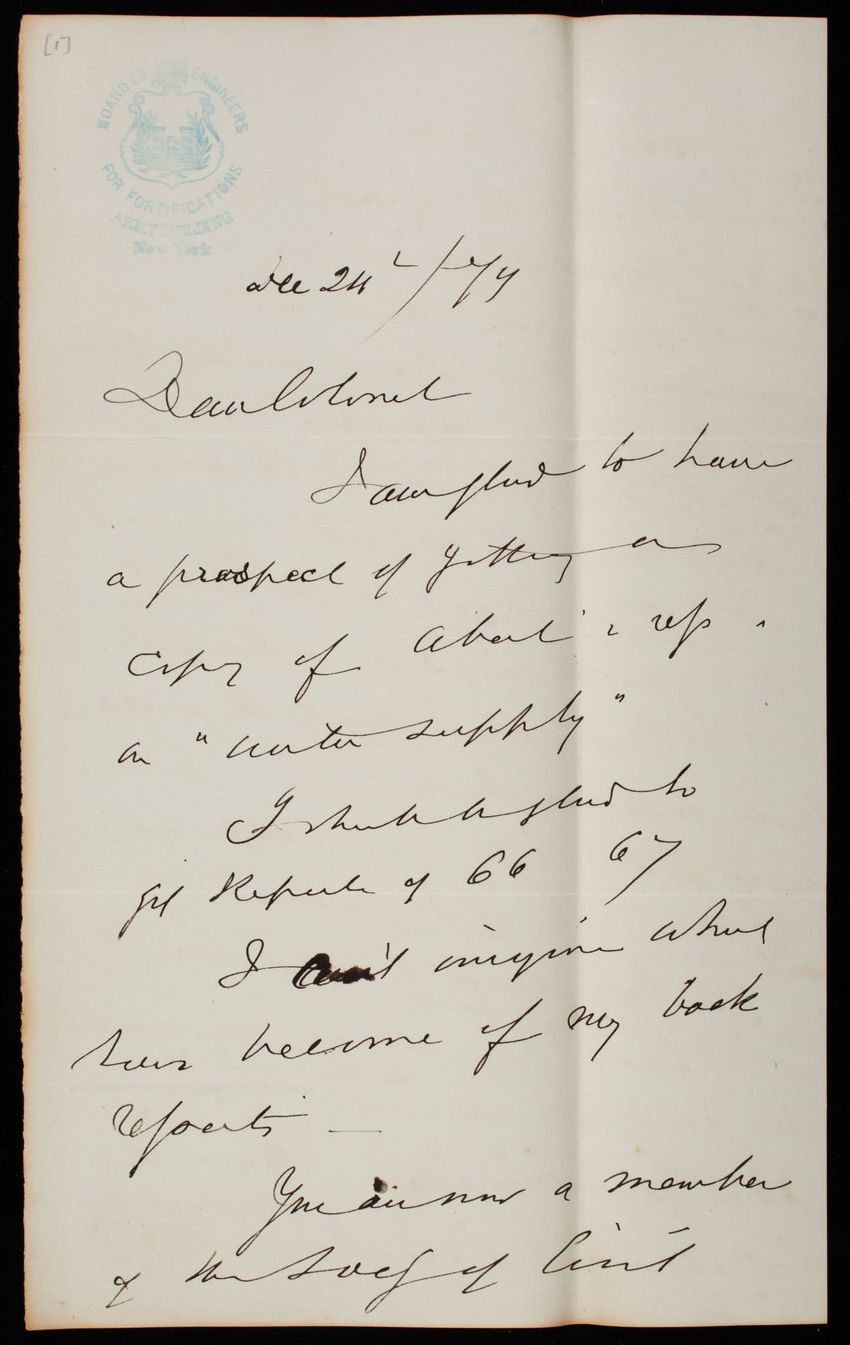 [1]
BOARD OF ENGINEERS
FOR FORTIFICATIONS
ARMY BUILDING
New York
Dec 24
Dear Colonel
I am glad to have
a prospect of getting a
copy of Abert's rep.
on "water supply"
I should be glad to
get Reports of 66 67
I can't imagine what
has become of my back
reports —
You are now a member
of the Socy of Civil